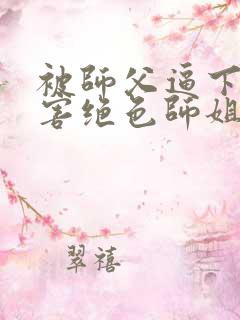 被師父逼下
害绝色師姐
翠禧